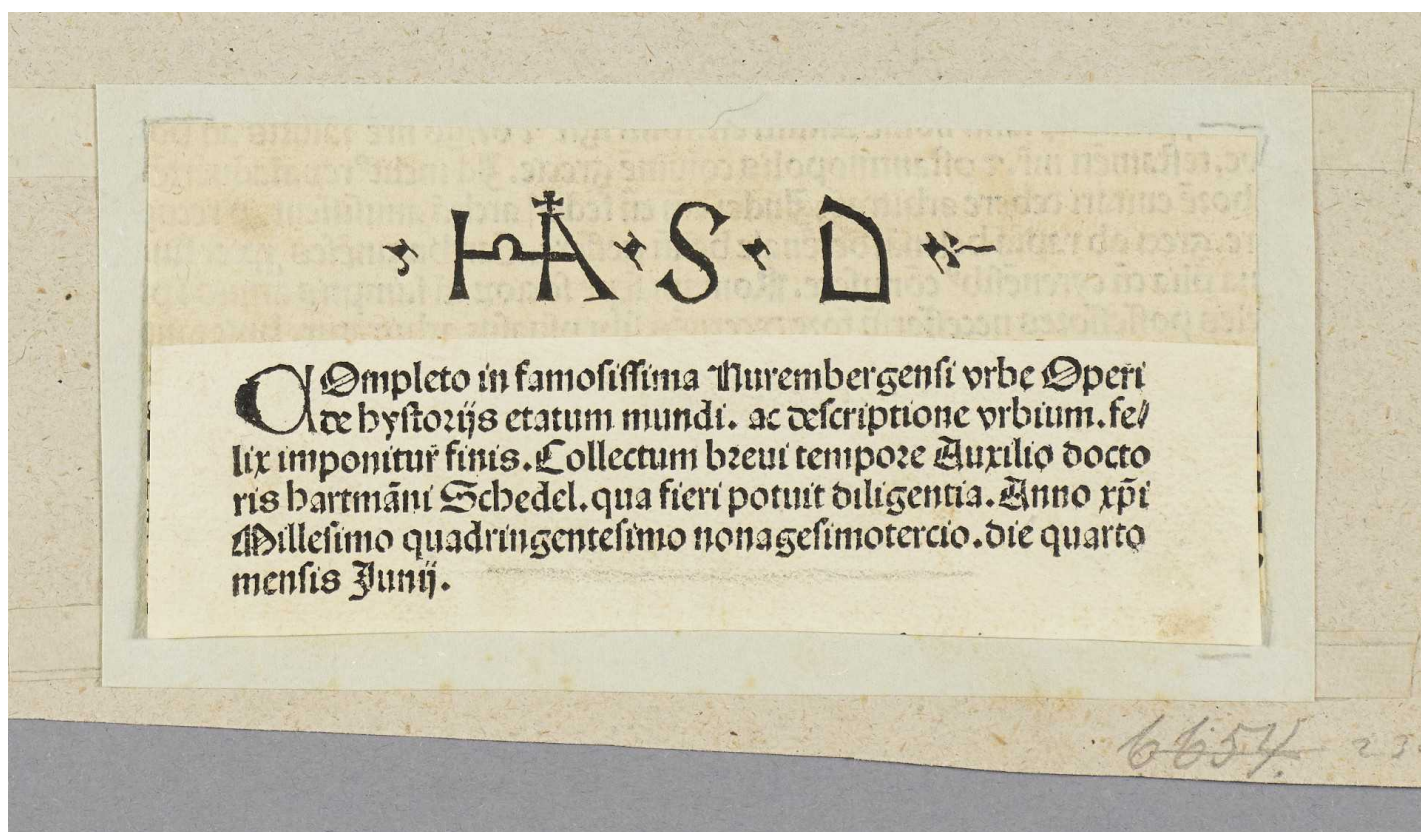 HA · S · D
COmpleto in famosissima Nurembergensi vrbe Operi
de hystorijs etatum mundi. ac descriptione vrbium. fe/
lix imponitur̃ finis. Collectum breui tempore Auxilio docto
ris hartmãni Schedel. qua fieri potuit diligentia. Anno xp̃i
Millesimo quadringentesimo nonagesimotercio. die quarto
mensis Junij.
6654
23